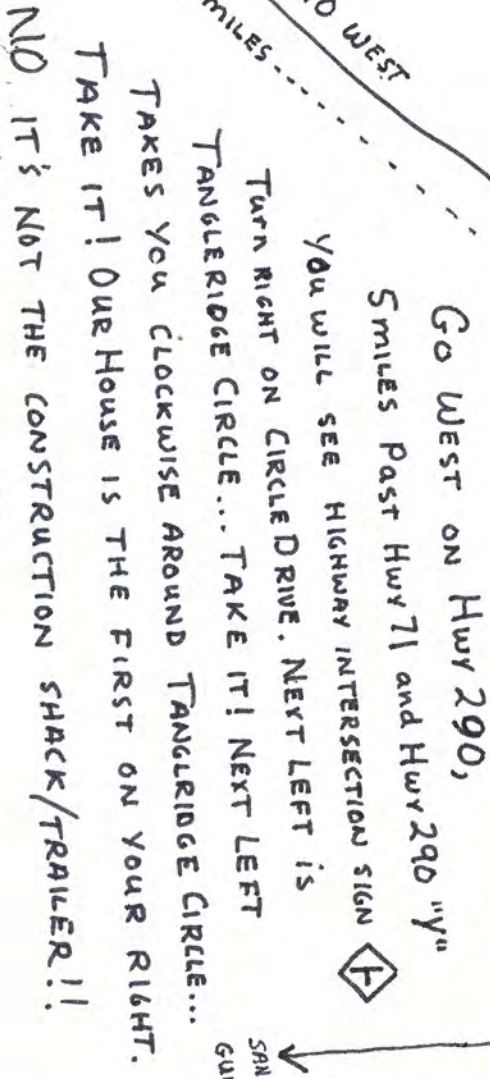 GO WEST ON HWY 290,
5 MILES PAST HWY 71 and HWY 290 "Y"
YOU WILL SEE HIGHWAY INTERSECTION SIGN
TURN RIGHT ON CIRCLE DRIVE. NEXT LEFT is
TANGLERIDGE CIRCLE... TAKE IT! NEXT LEFT
TAKES YOU CLOCKWISE AROUND TANGLRIDGE CIRCLE...
TAKE IT! OUR HOUSE IS THE FIRST ON YOUR RIGHT.
NO IT'S NOT THE CONSTRUCTION SHACK/TRAILER!!
WEST
MILES
SAN